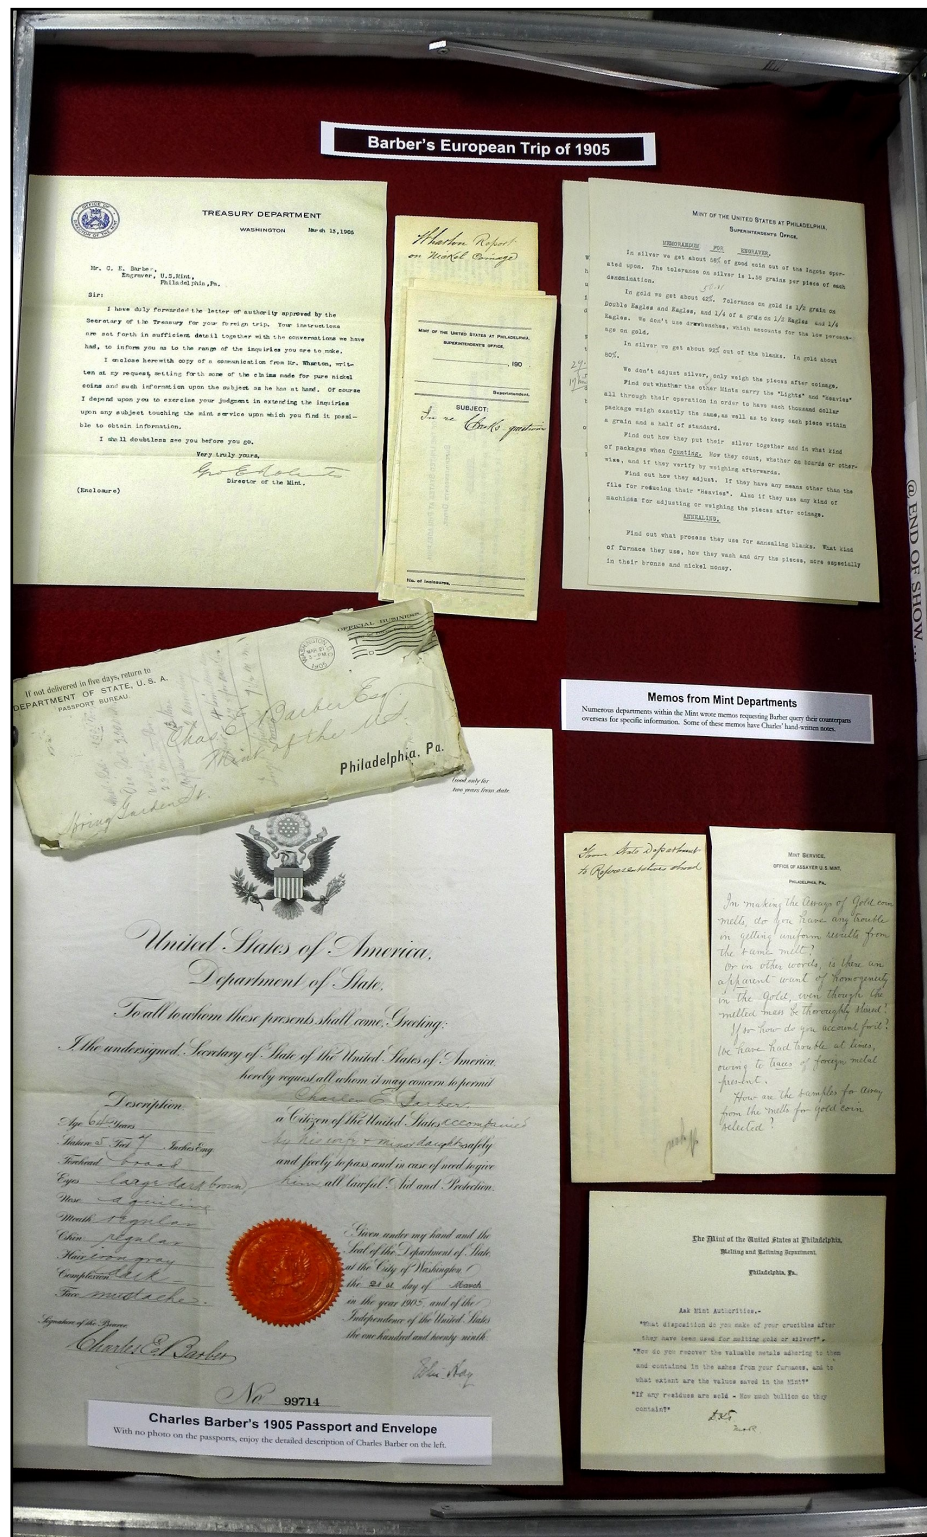 Barber's European Trip of 1905
TREASURY DEPARTMENT
WASHINGTON
March 13, 1905
Mr. C. E. Barber,
Engraver, U.S.Mint,
Philadelphia, Pa.
Sir:
I have duly forwarded the letter of authority approved by the
Secretary of the Treasury for your foreign trip. Your instructions
are set forth in sufficient detail together with the conversations we have
had, to inform you as to the range of the inquiries you are to make.
I enclose herewith copy of a communication from Mr. Wharton, writ-
ten at my request, setting forth some of the claims made for pure nickel
coins and such information upon the subject as he has at hand. Of course
I depend upon you to exercise your judgment in extending the inquiries
upon any subject touching the mint service upon which you find it possi-
ble to obtain information.
I shall doubtless see you before you go.
Very truly yours,
Director of the Mint.
(Enclosure)
Wharton Report
on Nickel Coinage
MINT OF THE UNITED STATES AT PHILADELPHIA,
SUPERINTENDENT'S OFFICE.
190
Superintendent.
SUBJECT:
In re
Clark's question
No. of Inclosures,
MINT OF THE UNITED STATES AT PHILADELPHIA,
SUPERINTENDENT'S OFFICE.
MEMORANDUM FOR ENGRAVER.
In silver we get about 58% of good coin out of the ingots oper-
ated upon. The tolerance on silver is 1.50 grains per piece of each
denomination.
In gold we get about 42%. Tolerance on gold is 1/2 grain on
Double Eagles and Eagles, and 1/4 of a grain on 1/2 Eagles and 1/4
Eagles. We don't use drawbenches, which accounts for the low percent-
age on gold.
In silver we get about 92% out of the blanks. In gold about
80%.
We don't adjust silver, only weigh the pieces after coinage.
Find out whether the other Mints carry the "Lights" and "Heavies"
all through their operation in order to have each thousand dollar
package weigh exactly the same, as well as to keep each piece within
a grain and a half of standard.
Find out how they put their silver together and in what kind
of packages when Counting. How they count, whether on boards or other-
wise, and if they verify by weighing afterwards.
Find out how they adjust. If they have any means other than the
file for reducing their "Heavies". Also if they use any kind of
machines for adjusting or weighing the pieces after coinage.
ANNEALING.
Find out what process they use for annealing blanks. What kind
of furnace they use, how they wash and dry the pieces, more especially
in their bronze and nickel money.
@ END OF SHOW...
OFFICIAL BUSINESS
WASHINGTON, D.C.
1905
If not delivered in five days, return to
DEPARTMENT OF STATE, U. S. A.
PASSPORT BUREAU.
Chas. E. Barber Esq.
Mint of the U.S.
Philadelphia, Pa.
Spring Garden St.
Memos from Mint Departments
Numerous departments within the Mint wrote memos requesting Barber query their counterparts
overseas for specific information. Some of these memos have Charles' hand-written notes.
Good only for
two years from date
United States of America,
Department of State,
To all to whom these presents shall come, Greeting:
I, the undersigned, Secretary of State of the United States of America,
hereby request all whom it may concern to permit
Charles E. Barber,
a Citizen of the United States accompanied
by his wife & minor daughter safely
and freely to pass, and in case of need to give
him all lawful Aid and Protection.
Description.
Age 64 Years
Stature 5 Feet 7 Inches Eng.
Forehead broad
Eyes large dark brown
Nose aquiline
Mouth regular
Chin regular
Hair iron gray
Complexion dark
Face mustache.
Signature of the Bearer
Charles E. Barber
Given under my hand and the
Seal of the Department of State,
at the City of Washington,
the 21st day of March
in the year 1905, and of the
Independence of the United States
the one hundred and twenty-ninth.
John Hay
No. 99714
Charles Barber's 1905 Passport and Envelope
With no photo on the passports, enjoy the detailed description of Charles Barber on the left.
From State Department
to Representatives abroad
MINT SERVICE,
OFFICE OF ASSAYER U.S. MINT,
PHILADELPHIA, PA.
In making the Assays of Gold coin
melts, do you have any trouble
in getting uniform results from
the same melt?
Or in other words, is there an
apparent want of homogeneity
in the Gold, even though the
melted mass be thoroughly stirred?
If so how do you account for it?
We have had trouble at times,
owing to traces of foreign metal
present.
How are the samples for assay
from the melts for gold coin
selected?
The Mint of the United States at Philadelphia,
Melting and Refining Department,
Philadelphia, Pa.,
Ask Mint Authorities.-
"What disposition do you make of your crucibles after
they have been used for melting gold or silver?"
"How do you recover the valuable metals adhering to them
and contained in the ashes from your furnaces, and to
what extent are the values saved in the Mint?"
"If any residues are sold - How much bullion do they
contain?"